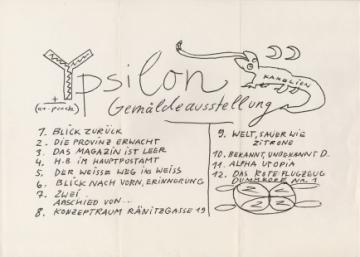 Ypsilon
Gemäldeausstellung
KANALIEN
1. BLICK ZURÜCK
2. DIE PROVINZ ERWACHT
3. DAS MAGAZIN IST LEER
4. H-B IM HAUPTPOSTAMT
5. DER WEISSE WEG INS WEISS
6. BLICK NACH VORN, ERINNERUNG
7. ZWEI
ABSCHIED VON...
8. KONZEPTRAUM RÄNITZGASSE 19
9. WELT, SAUER WIE
ZITRONE
10. BEKANNT, UNBEKANNT D.
11. ALPHA UTOPIA
12. DAS ROTE FLUGZEUG
NR. 1